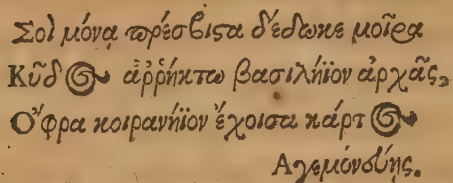 Σοὶ μόνᾳ πρέσβιστα δέδωκε μοῖρα
Κῦδος ἀῤῥήκτω βασιλήϊον ἀρχᾶς,
Ὄφρα κοιρανήϊον ἔχοισα κάρτος
Αγεμονεύης.